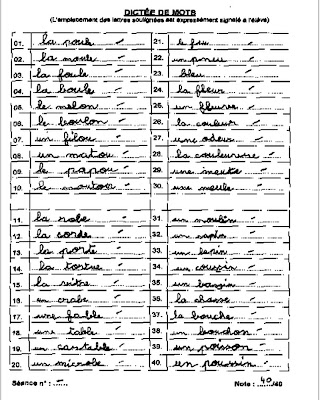 DICTÉE DE MOTS
(L'emplacement des lettres soulignées est expressément signalé à l'élève)
01. la poule
02. la moule
03. la foule
04. la boule
05. le melon
06. le boulon
07. un filou
08. un matou
09. le papou
10. le mouton
11. la robe
12. la corde
13. la porte
14. la tortue
15. la
16. un crabe
17. une fable
18. une table
19. un cartable
20. un microbe
21. le feu
22. un pneu
23. bleu
24. la fleur
25. un fleuve
26. la couleur
27. une odeur
28. la couleuvre
29. une meute
30. une meule
31. un moulin
32. un sapin
33. un lapin
34. un coussin
35. un bassin
36. la chasse
37. la bouche
38. un bouchon
39. un poisson
40. un poussin
Séance n° :
Note : 40/40